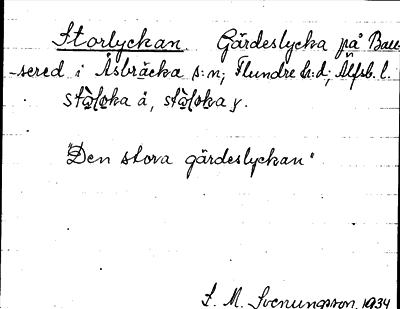 Storlyckan. Gärdeslycka på Balt-
-sered i Åsbräcka s:n; Flundre h:d; Älfsb. l.
"Den stora gärdeslyckan"
S. M. Svenungsson. 1934